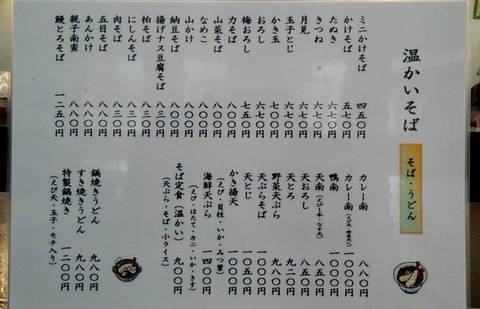 温かいそば
そば・うどん
ミニかけそば 四五〇円
かけそば 五七〇円
たぬき 六七〇円
きつね 六七〇円
月見 六七〇円
玉子とじ 六七〇円
かき玉 六七〇円
おろし 六七〇円
梅おろし 七五〇円
力そば 八〇〇円
山菜そば 八〇〇円
なめこ 八〇〇円
山かけ 八〇〇円
納豆そば 八〇〇円
揚げナス豆腐そば 八三〇円
柏そば 八三〇円
にしんそば 八三〇円
肉そば 八三〇円
五目そば 八八〇円
あんかけ 八八〇円
親子南蛮 八八〇円
鰻とろそば 一二五〇円
カレー南 八八〇円
カレー南 一〇〇〇円
鴨南 一〇〇〇円
天南 八五〇円
天おろし 八五〇円
天とろ 九二〇円
野菜天ぷら 九八〇円
天ぷらそば 一〇〇〇円
天とじ 一〇〇〇円
かき揚天
(えび・貝柱・いか・みつ葉)
海鮮天ぷら 一四〇〇円
(えび・ほたて・カニ・いか・きす)
そば定食(温かい) 九〇〇円
(天ぷら・そば・小ライス)
鍋焼きうどん 九八〇円
すき焼きうどん 九八〇円
特製鍋焼き 一二〇〇円
(えび天・玉子・モチ入り)